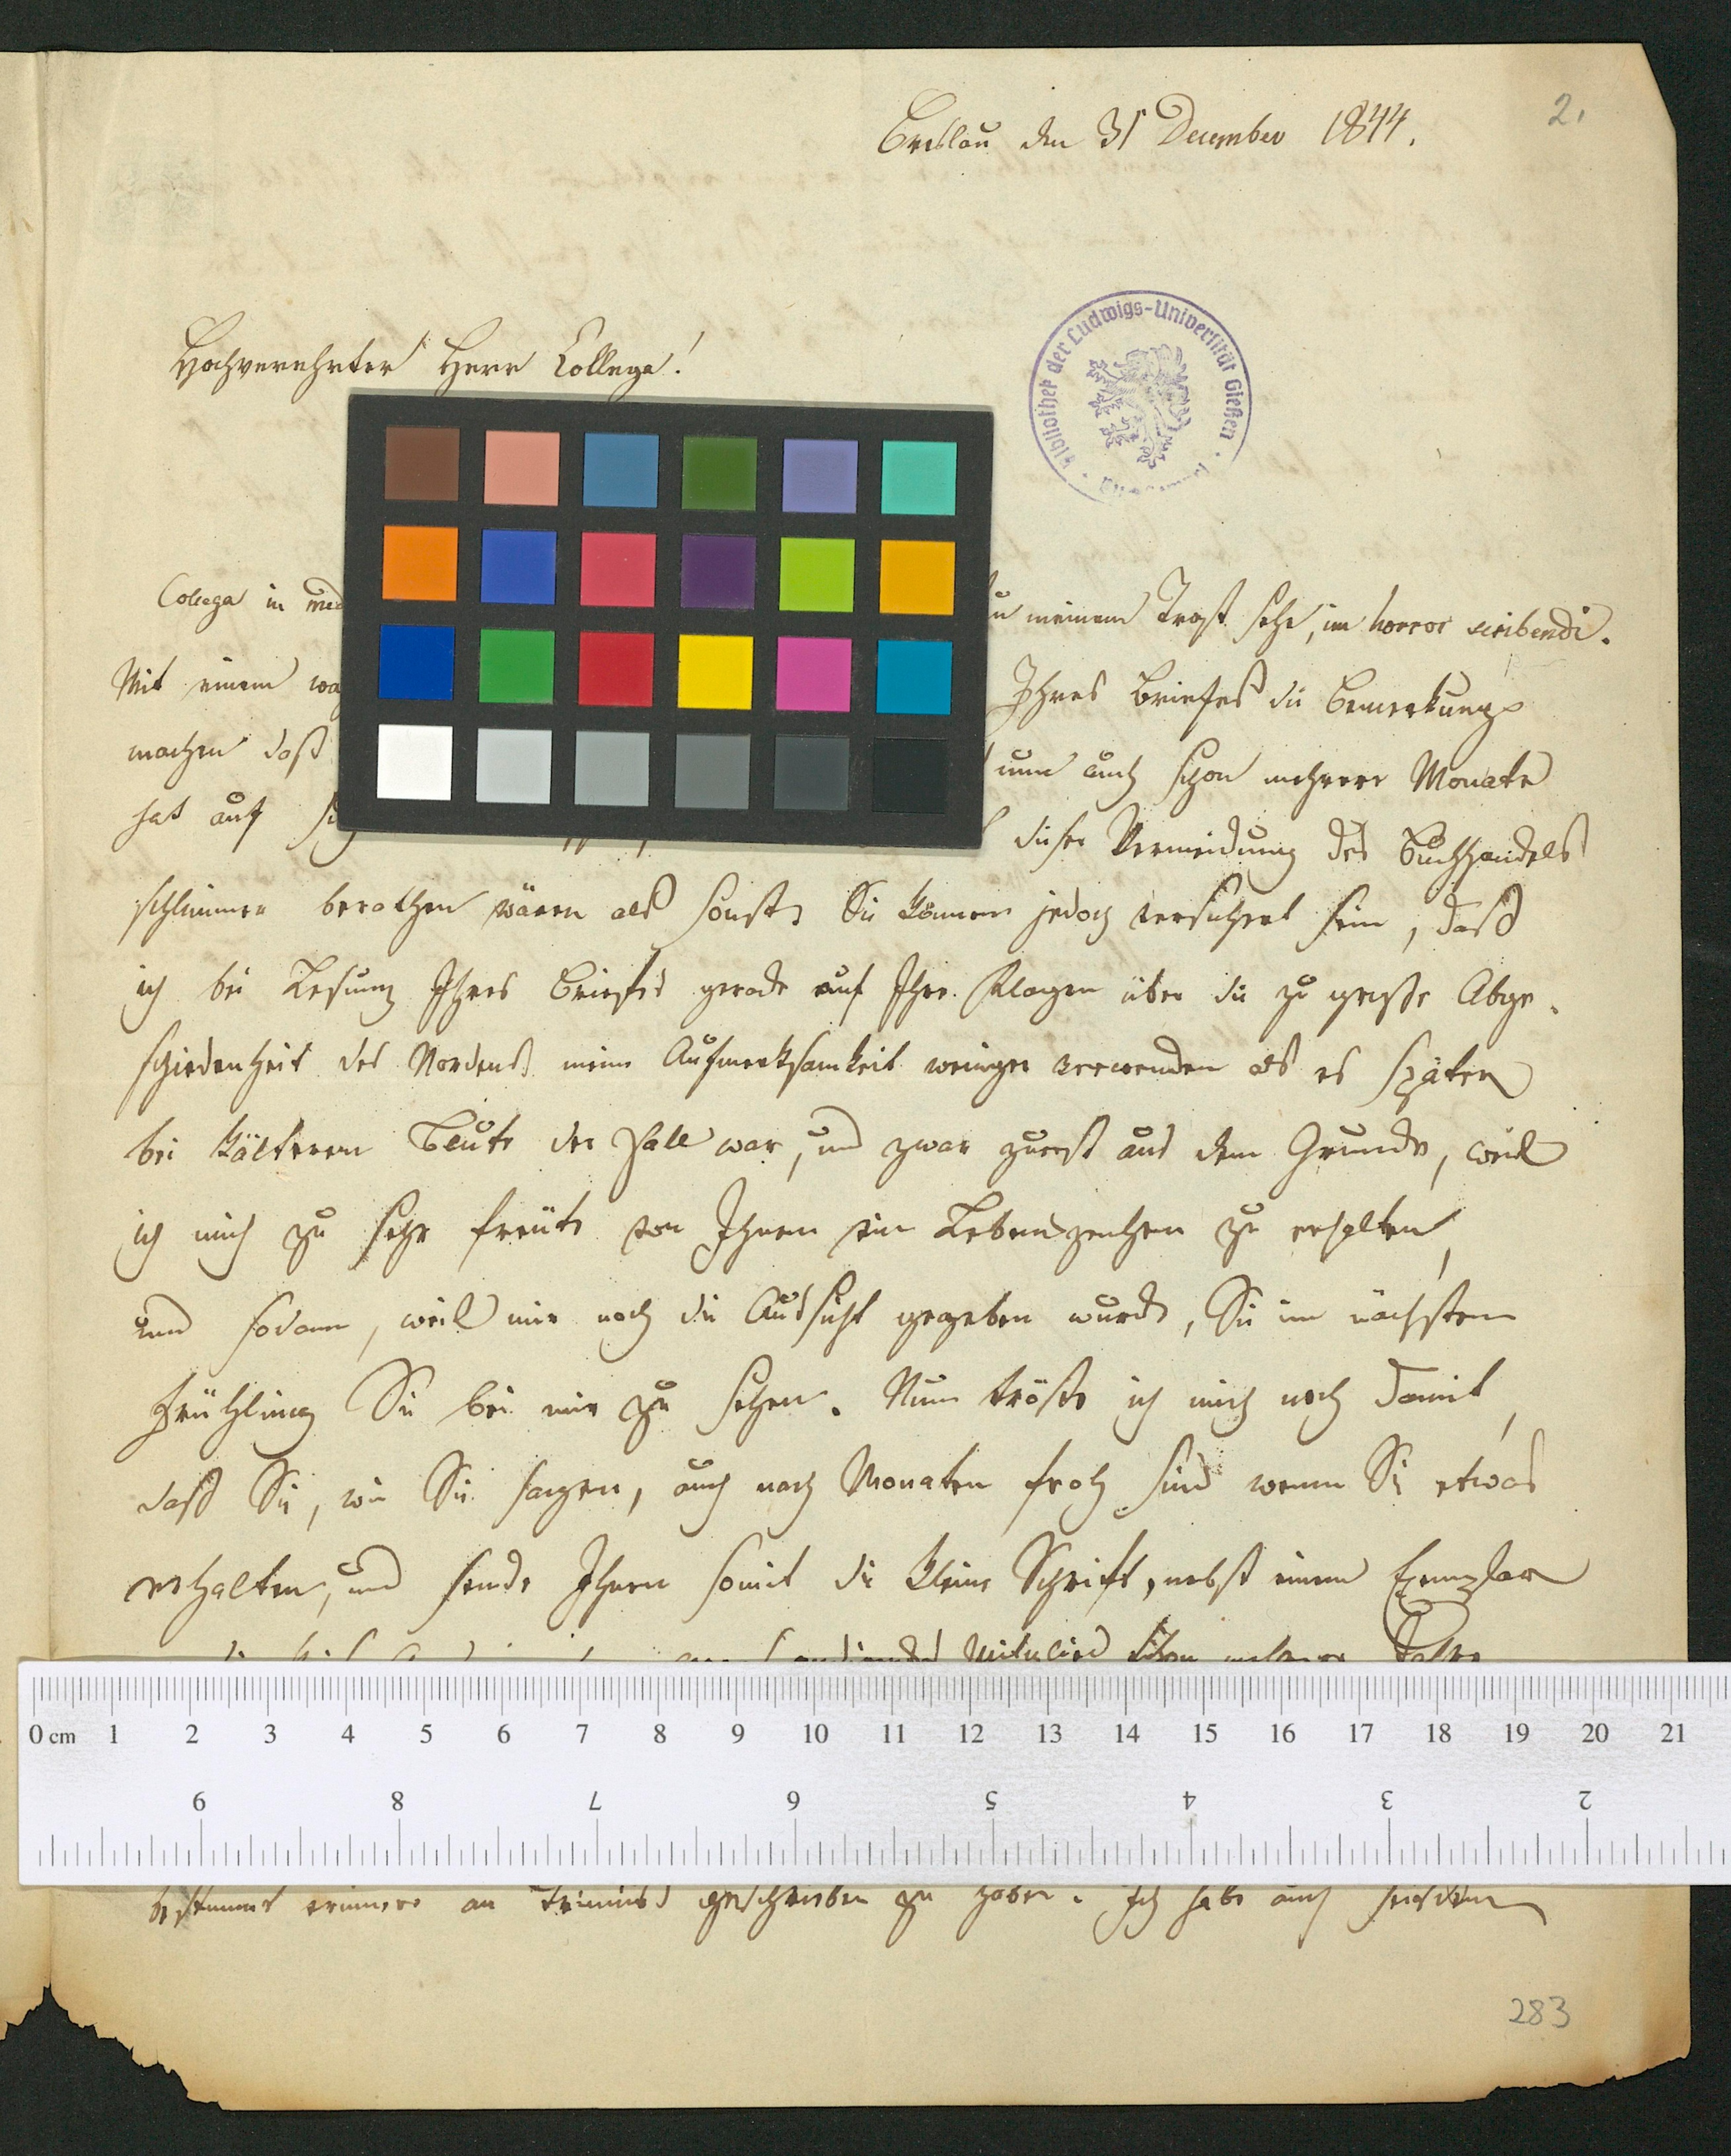 2.
Breslau den 31 December 1844.
Hochverehrter Herr Collega!
Bibliothek der Ludwigs-Universität Gießen
Collega in med
meinem Trost sehe, im horror scribendi.
Mit einem
Ihres Briefes die Bemerkung
machen daß
nun auch schon mehrere Monate
hat auf
dieser Vermeidung des Buchhandels
schlimmer berathen wären als sonst. Sie können jedoch versichert sein, daß
ich bei Lesung Ihres Briefes gerade auf Ihre Klagen über die zu große Abge-
schiedenheit des Nordens meine Aufmerksamkeit weniger verwenden als es später
bei kälterem Blute der Fall war, und zwar zuerst aus dem Grunde, weil
ich mich zu sehr freute von Ihnen ein Lebenszeichen zu erhalten,
und sodann, weil mir noch die Aussicht gegeben wurde, Sie im nächsten
Frühling Sie bei mir zu sehen. Nun tröste ich mich noch damit,
daß Sie, wie Sie sagen, auch nach Monaten froh sind wenn Sie etwas
erhalten, und sende Ihnen somit die kleine Schrift, nebst einem Exemplar
Mitglied schon
0 cm 1 2 3 4 5 6 7 8 9 10 11 12 13 14 15 16 17 18 19 20 21
9 8 7 6 5 4 3 2
bestimmt erinnere an geschrieben zu haben. Ich habe auch seitdem
283